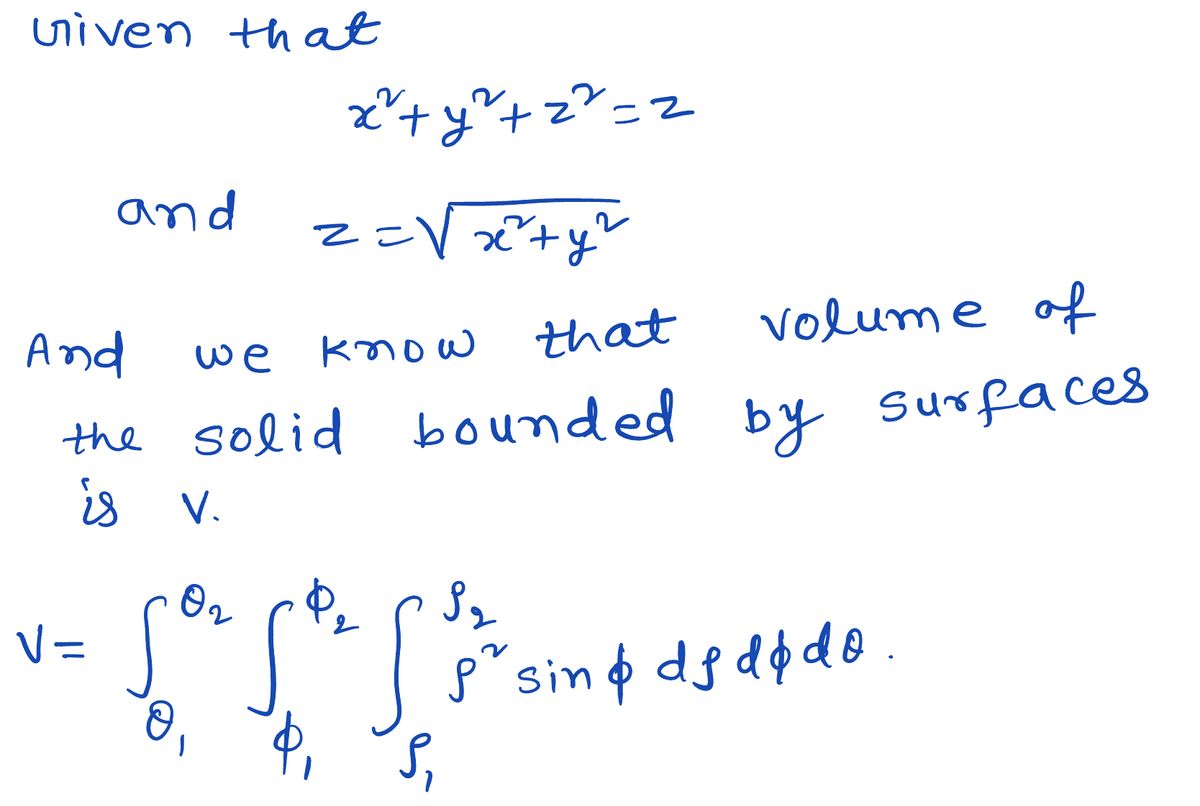 Given that
x²+y²+z²=z
and z=√x²+y²
And we know that volume of
the solid bounded by surfaces
is V.
V= ∫_θ₁^θ₂ ∫_ϕ₁^ϕ₂ ∫_ρ₁^ρ₂ ρ² sinϕ dρdϕdθ.